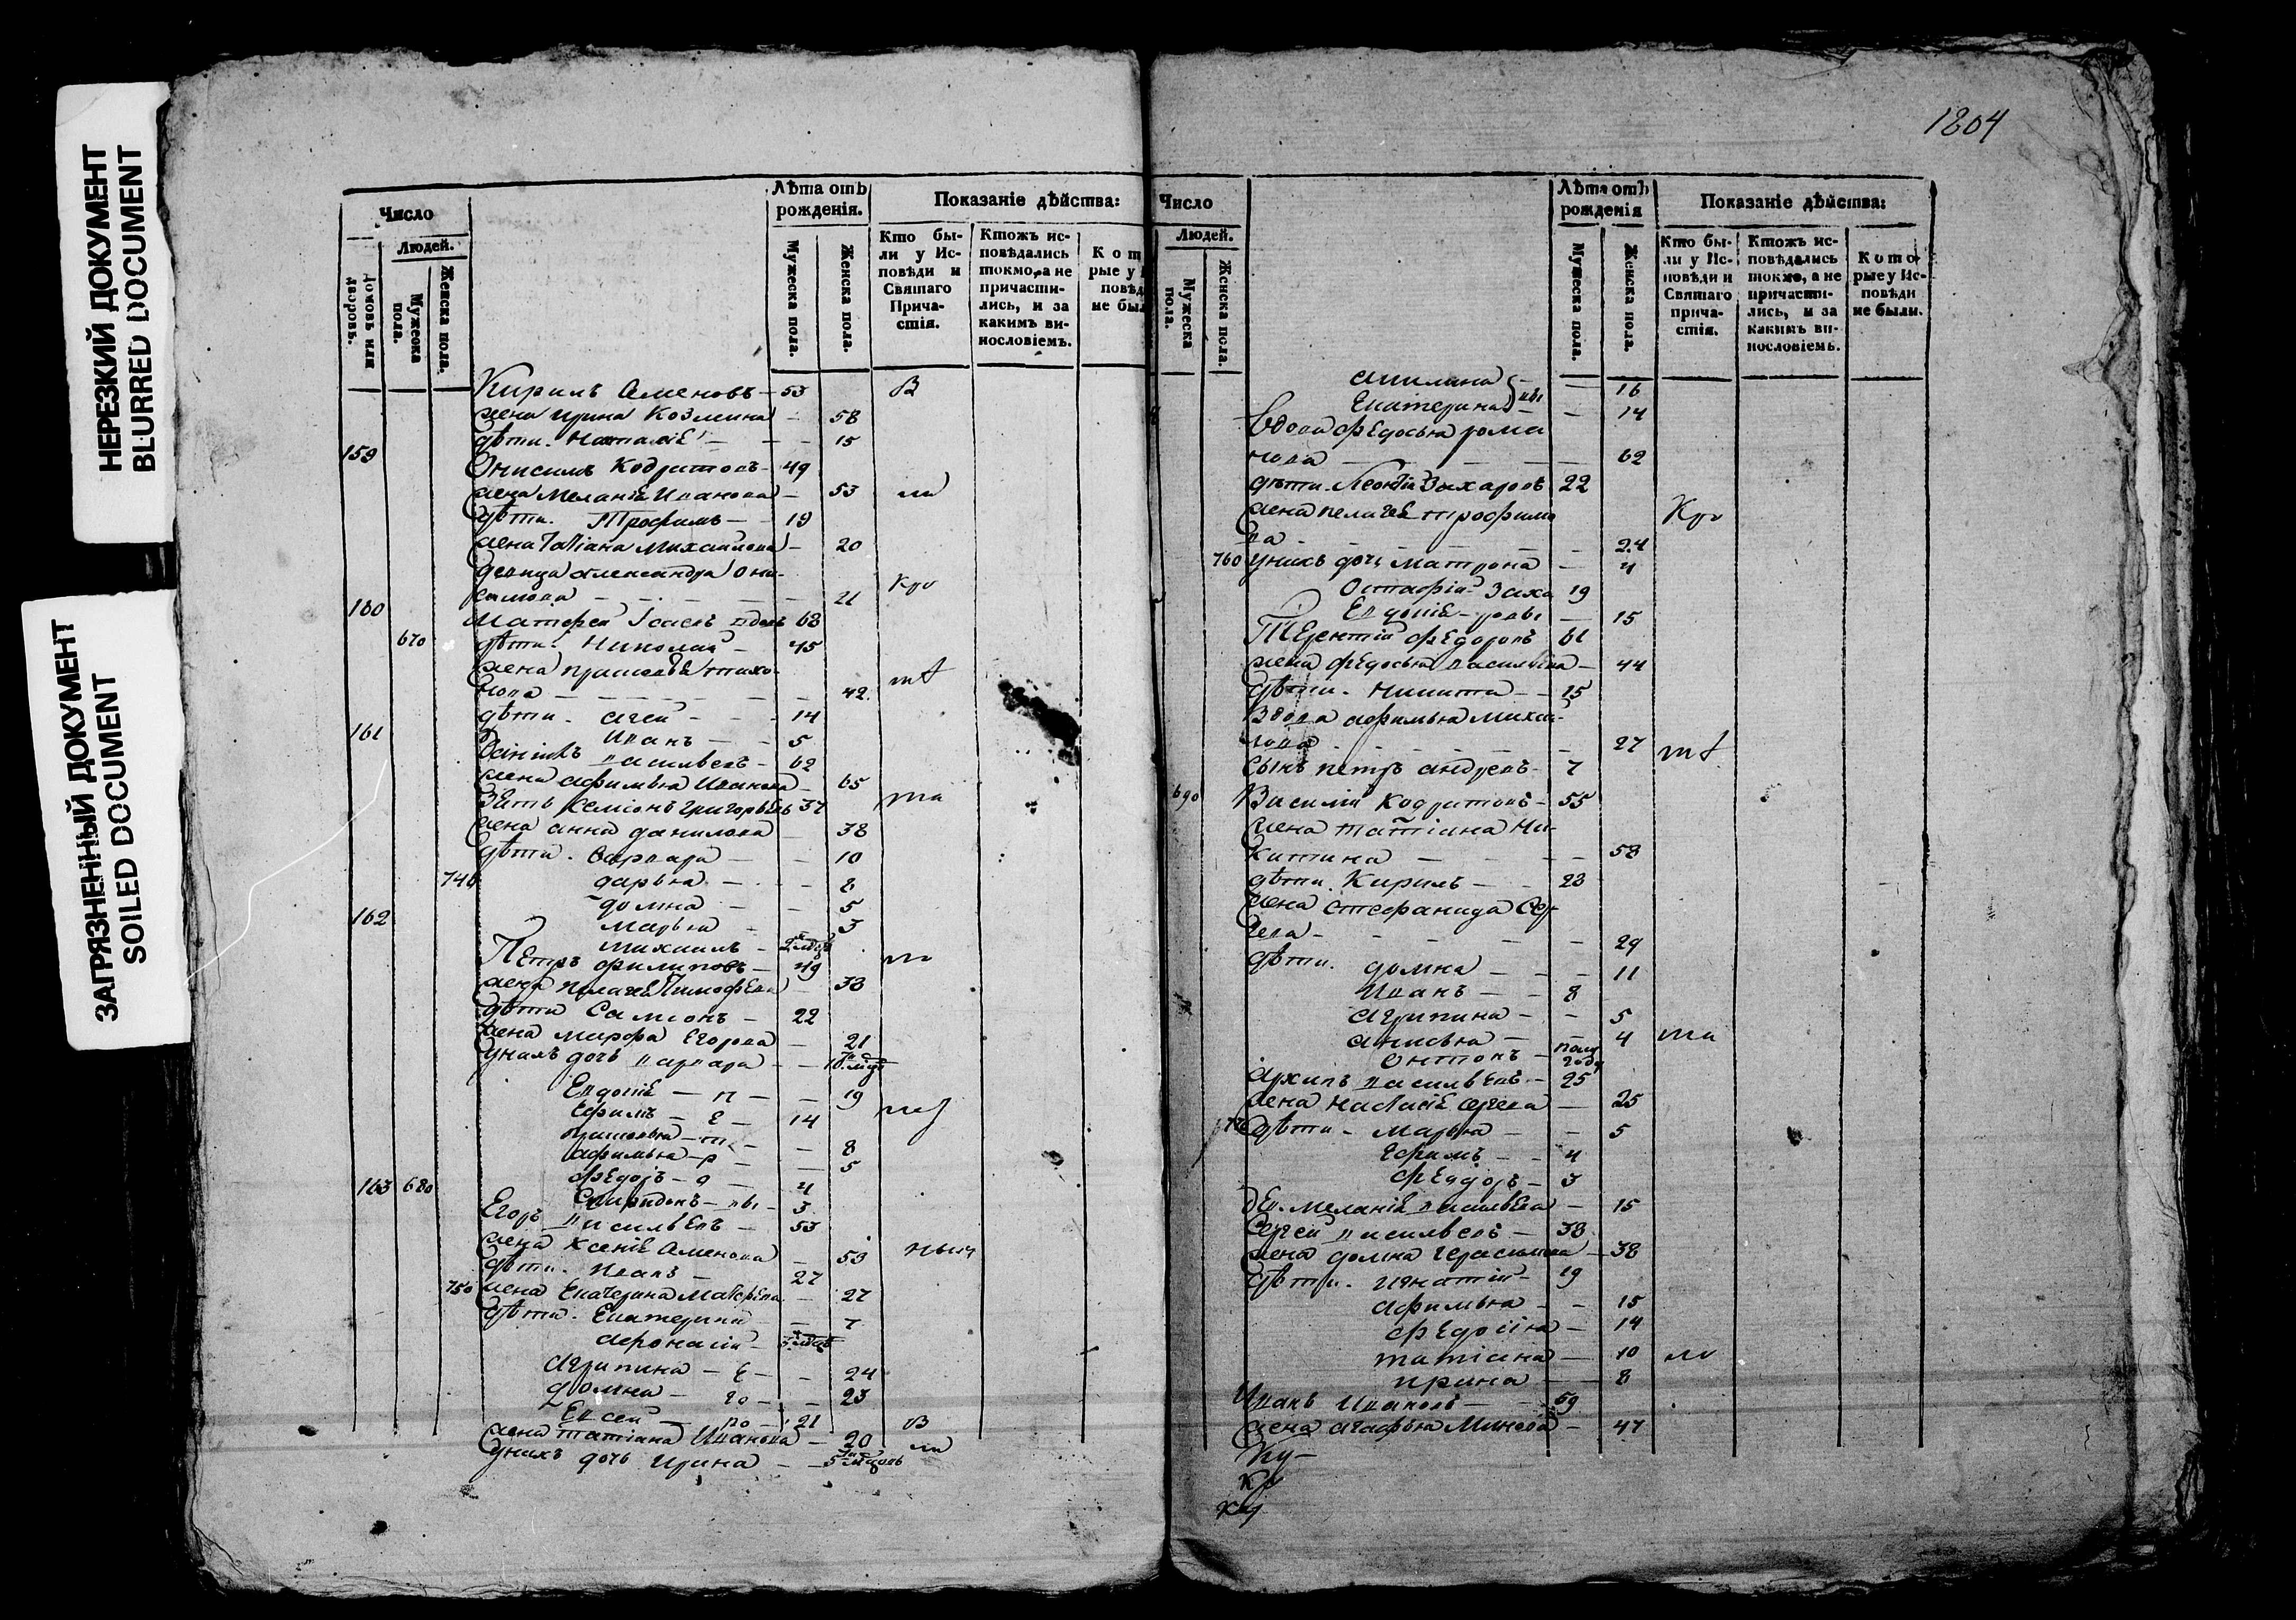 НЕРЕЗКИЙ ДОКУМЕНТ
BLURRED DOCUMENT
ЗАГРЯЗНЕННЫЙ ДОКУМЕНТ
SOILED DOCUMENT
Число
Людей.
домовъ или дворовъ.
Мужеска пола.
Женска пола.
Лѣта отъ рожденія.
Мужеска пола.
Женска пола.
Показаніе дѣйства:
Кто бы-
ли у Ис-
повѣди и
Святаго
Прича-
стія.
Ктожъ ис-
повѣдались
токмо, а не
причасти-
лись, и за
какимъ ви-
нословіемъ.
Кот
рые у
повѣд
не был
Кирилъ Семеновъ - 53 В
жена Ирина Козмина - 58
дѣти. Наталіе - 15
159
Онисимъ Кодратовъ - 49
жена Меланіе Иванова - 53 ли
дѣти. Трофимъ - 19
жена Татіана Михаилова - 20
девица Александра Они-
симова - 21 Кро
160
Матфеи Исаевъ вдовъ 68
670 дѣти. Николаи - 45
жена Прасковѣе тихо-
нова - 42 мѣ
дѣти. Агеи - 14
161 Иванъ - 5
Данилъ Васильевъ - 62
жена Афимья Иванова - 65
Зѣть Семіонъ Григорьевъ 37 та
жена Анна Данилова - 38
дѣти. Варвара - 10
740 Дарья - 8
Домна - 5
162 Марья - 3
Михаилъ - 2
Петръ Филиповъ - 49
жена Пелагѣе Тимофеева 38
дѣти Самсонъ - 22
жена Марфа Егорова - 21
у нихъ дочь Варвара - 10
Евдокіе - в - 19
Ефимъ - е - 14
Прасковья - т - 8
Афимья - р - 5
Федоръ - о - 4
163 680 Спиридонъ - вы - 3
Егоръ Васильевъ - 53
жена Ксеніе Семенова - 53
дѣти. Иванъ - 27
750 жена Екатерина Матфеева - 27
дѣти. Екатерина - 7
Афонасіи - 3
Агрипина - Е - 24
Домна - го - 23
Евсеи - ро - 21 В
жена Татіана Иванова - 20 ли
у нихъ дочь Ирина - 5
1804
Число
Людей.
Мужеска пола.
Женска пола.
Лѣта отъ рожденія
Мужеска пола.
Женска пола.
Показаніе дѣйства:
Кто бы-
ли у Ис-
повѣди и
Святаго
прича-
стія.
Ктожъ ис-
повѣдались
токмо, а не
причасти-
лись, и за
какимъ ви-
нословіемъ.
Кото-
рые у Ис-
повѣди
не были.
Акилина - 16
Екатерина вы - 14
Вдова Федосья Рома
нова - 62
дѣти. Леонтіи Захаровъ 22
жена Пелагѣе Трофимо Кро
ва - 24
760 у нихъ дочь Матрона - 4
Остафіи Заха 19
Евдокіе - ровы - 15
Терентіи Федоровъ 61
жена Федосья Васильева - 44
дѣти. Никита - 15
Вдова Афимья Михаи-
лова - 27 мѣ
сынъ Петръ Андреевъ - 7
690 Василіи Кодратовъ - 55
жена Татіана Ни-
китина - 58
дѣти. Кирилъ - 28
жена Стефанида Сер
геева - 29
дѣти. Домна - 11
Иванъ - 8
Агрипина - 5
Анисья - 4 та
Онтонъ - полу года
Архипъ Васильевъ - 25
жена Настасіе Сергеева - 25
дѣти - Марья - 5
Ефимъ - 4
Федоръ - 3
дев. Меланіе Васильева - 15
Сергеи Васильевъ - 38
жена Домна Герасимова - 38
дѣти. Игнатіи - 19
Афимья - 15
Федосья - 14
Татіана - 10
Ирина - 8
Иванъ Ивановъ - 59
жена Агафья Минеева - 47